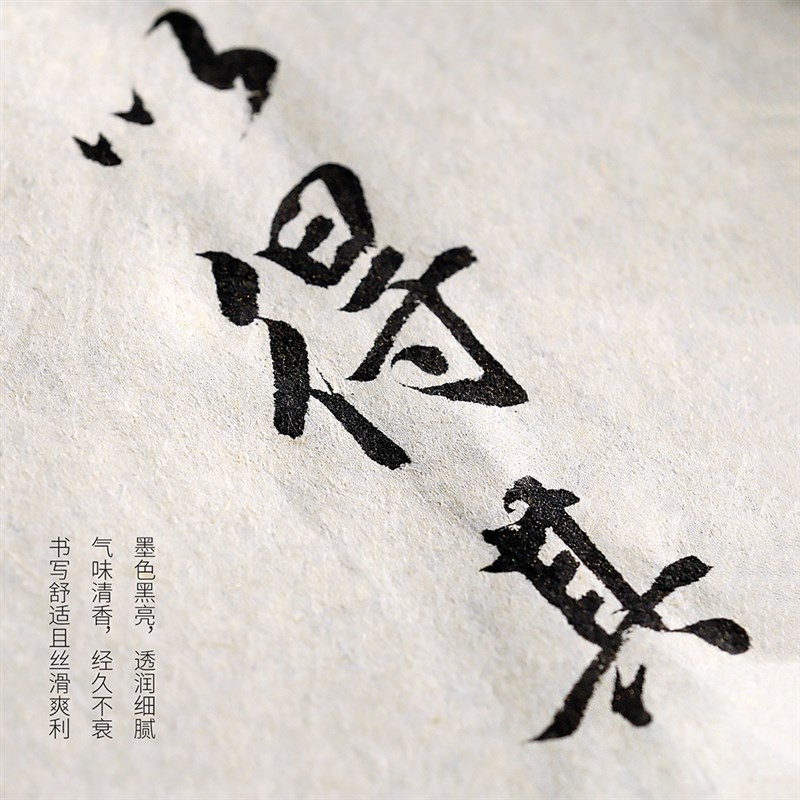 得
墨色黑亮，透润细腻
气味清香，经久不衰
书写舒适且丝滑爽利